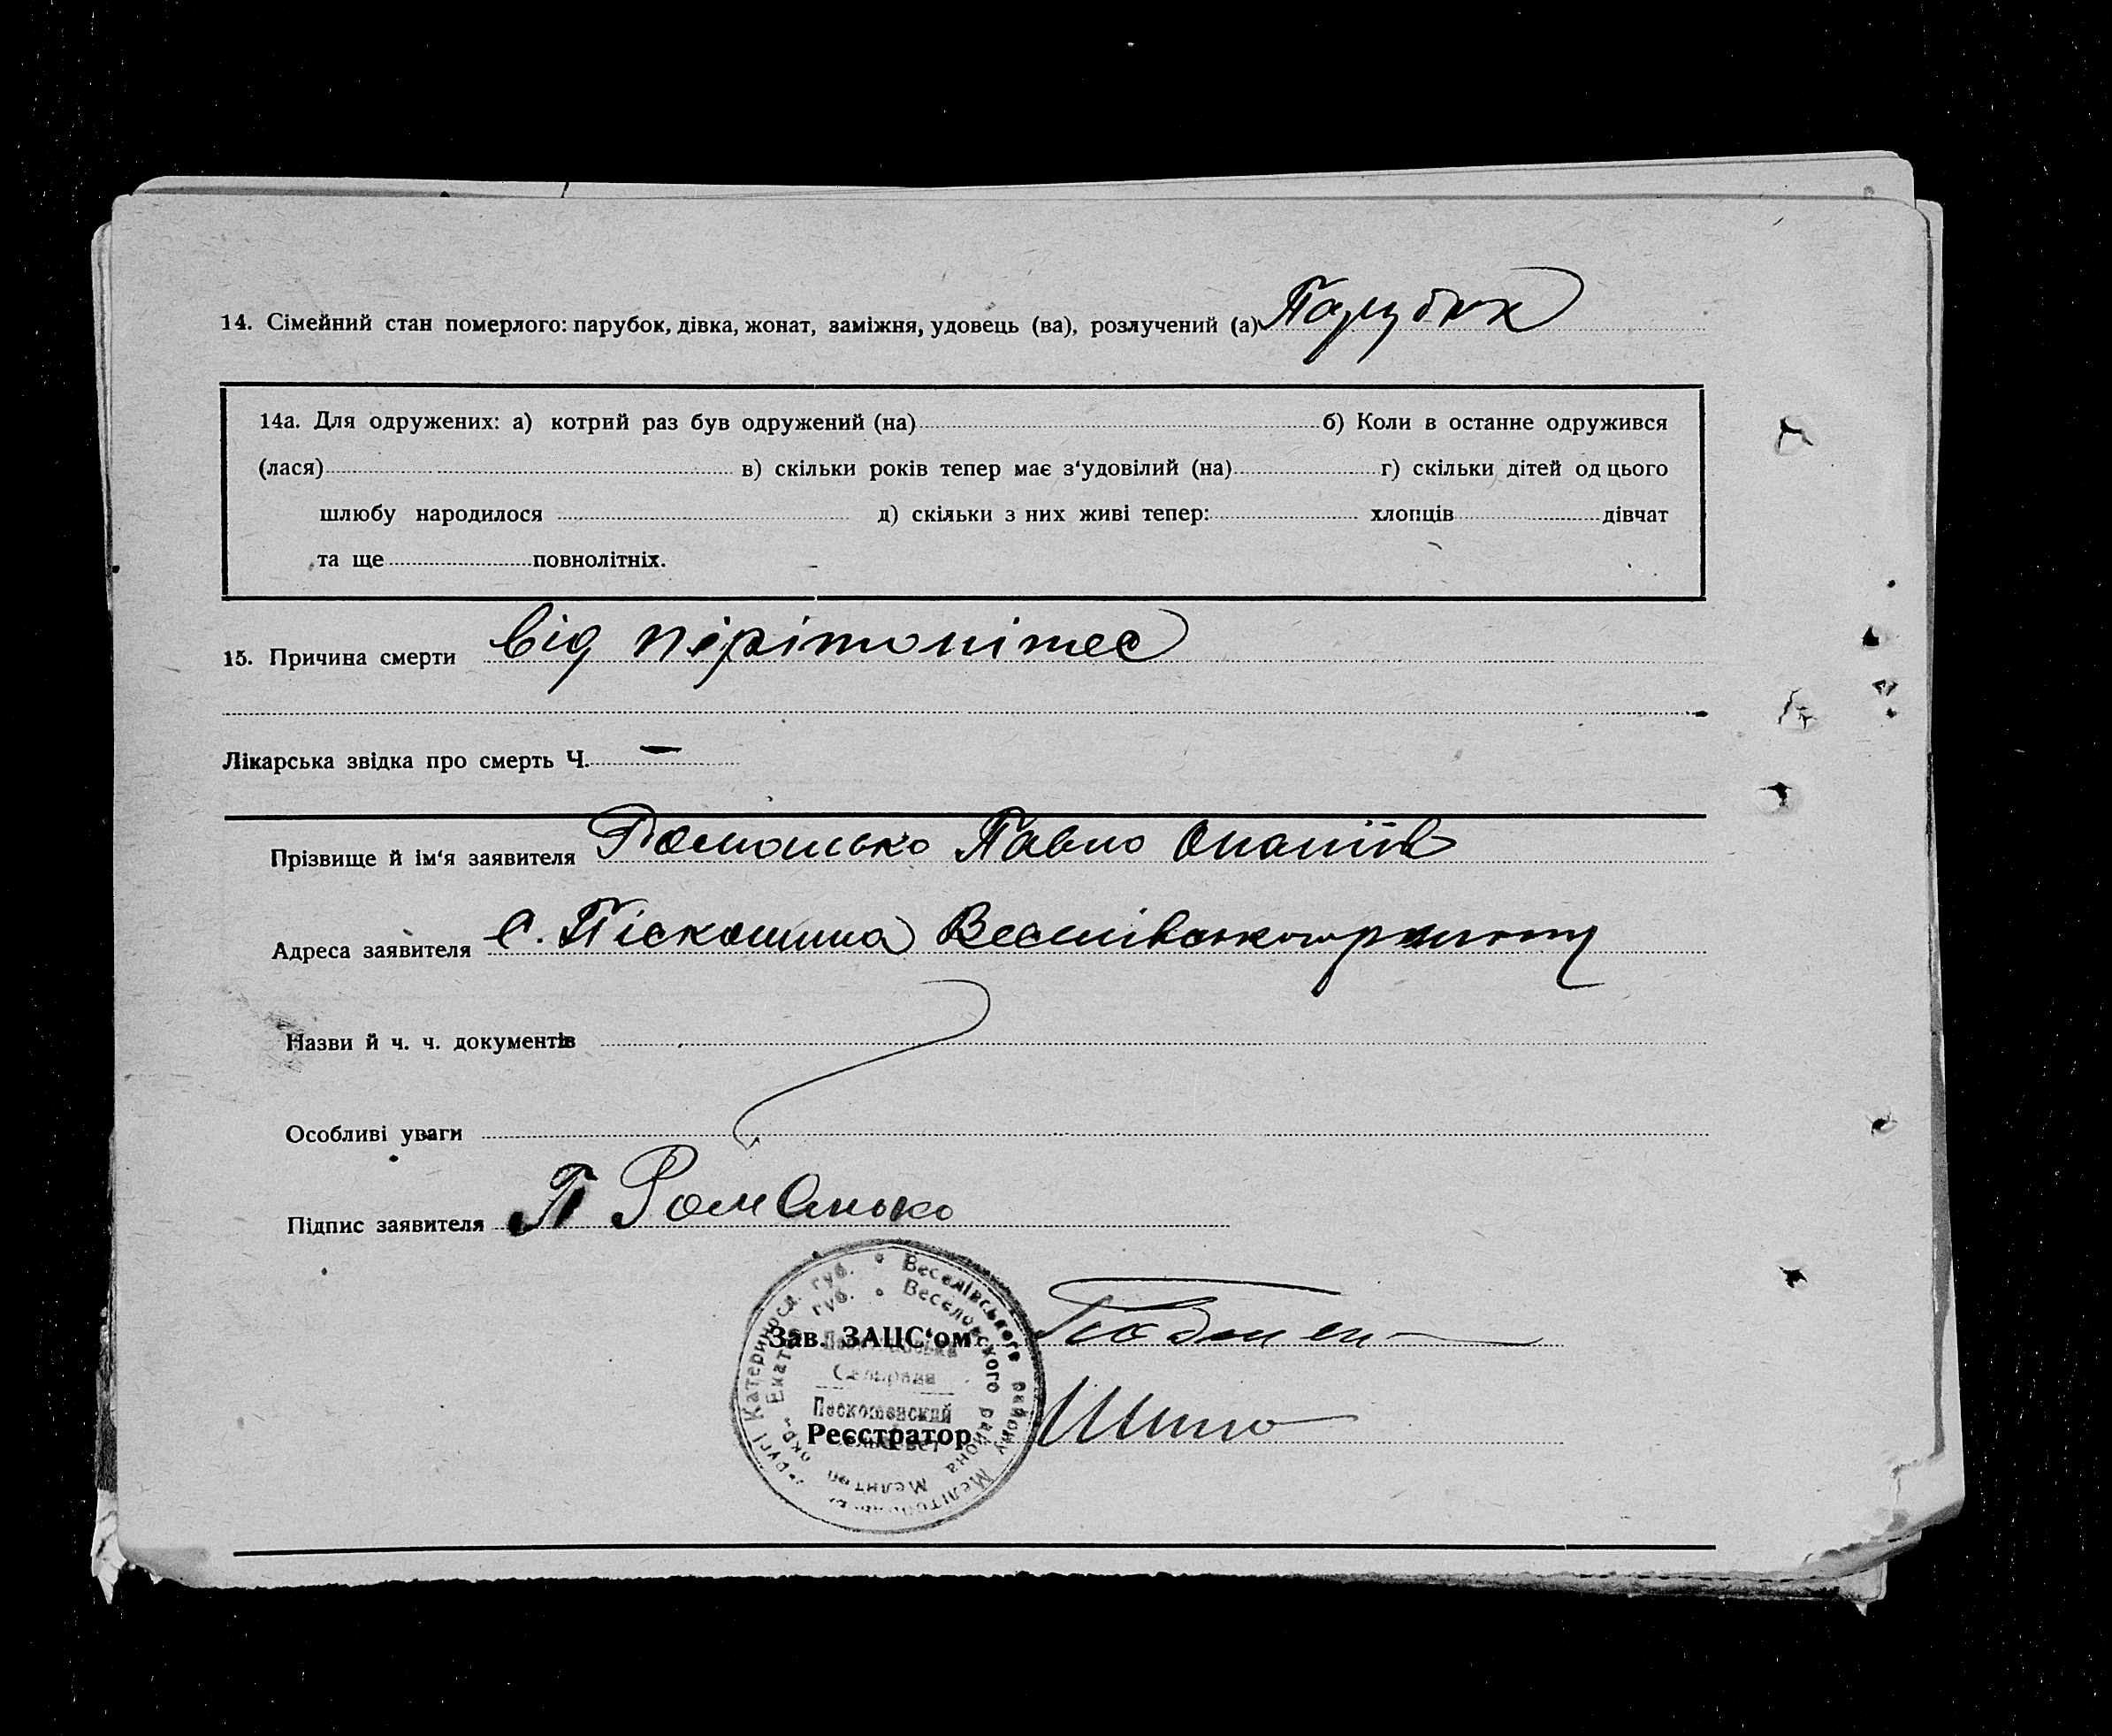 14. Сімейний стан померлого: парубок, дівка, жонат, заміжня, удовець (ва), розлучений (а) Парубок
14а. Для одружених: а) котрий раз був одружений (на) б) Коли в останне одружився
(лася) в) скільки років тепер має з‘удовілий (на) г) скільки дітей од цього
шлюбу народилося д) скільки з них живі тепер: хлопців дівчат
та ще повнолітніх.
15. Причина смерти від
Лікарська звідка про смерть Ч. —
Прізвище й ім‘я заявителя Романько Павло
Адреса заявителя с. Піскошина Веселівського району
Назви й ч. ч. документів
Особливі уваги
Підпис заявителя П Романько
Веселівського району Катериносл. губ.
Веселовского района Мелитоп. окр. губ.
Зав. ЗАЦС‘ом
Сельрада
Пескошенский
Реєстратор